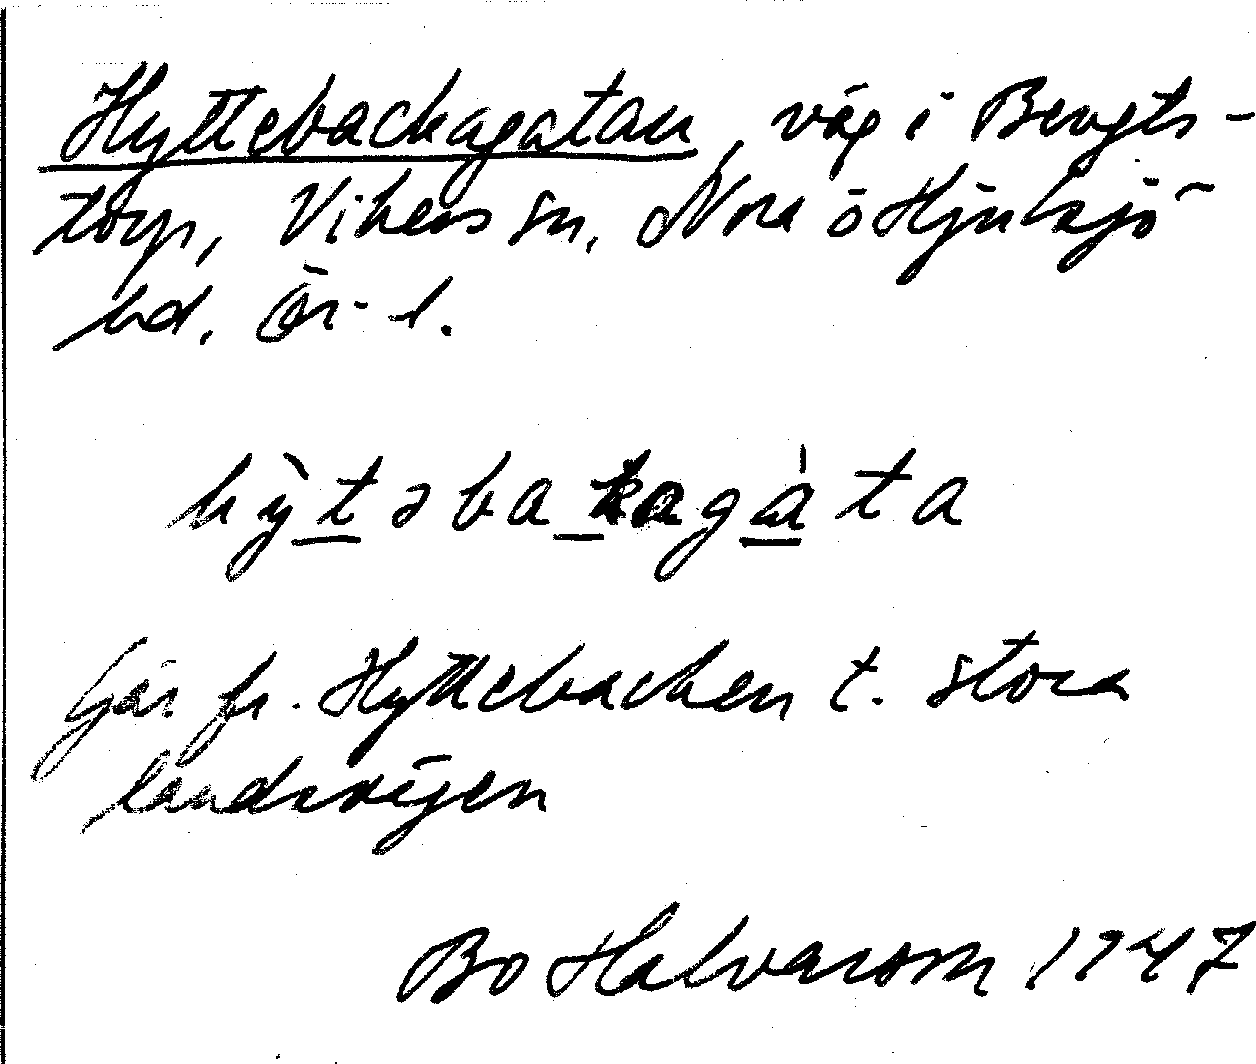 Hyttebackagatan, väg i Bengts-
torp, Vikers sn, Nora ō Hjulsjö
hd. Ör. l.
hy̆̀təbakagàta
Går fr. Hyttebacken t. stora
landsvägen
Bo Halvarson 1947